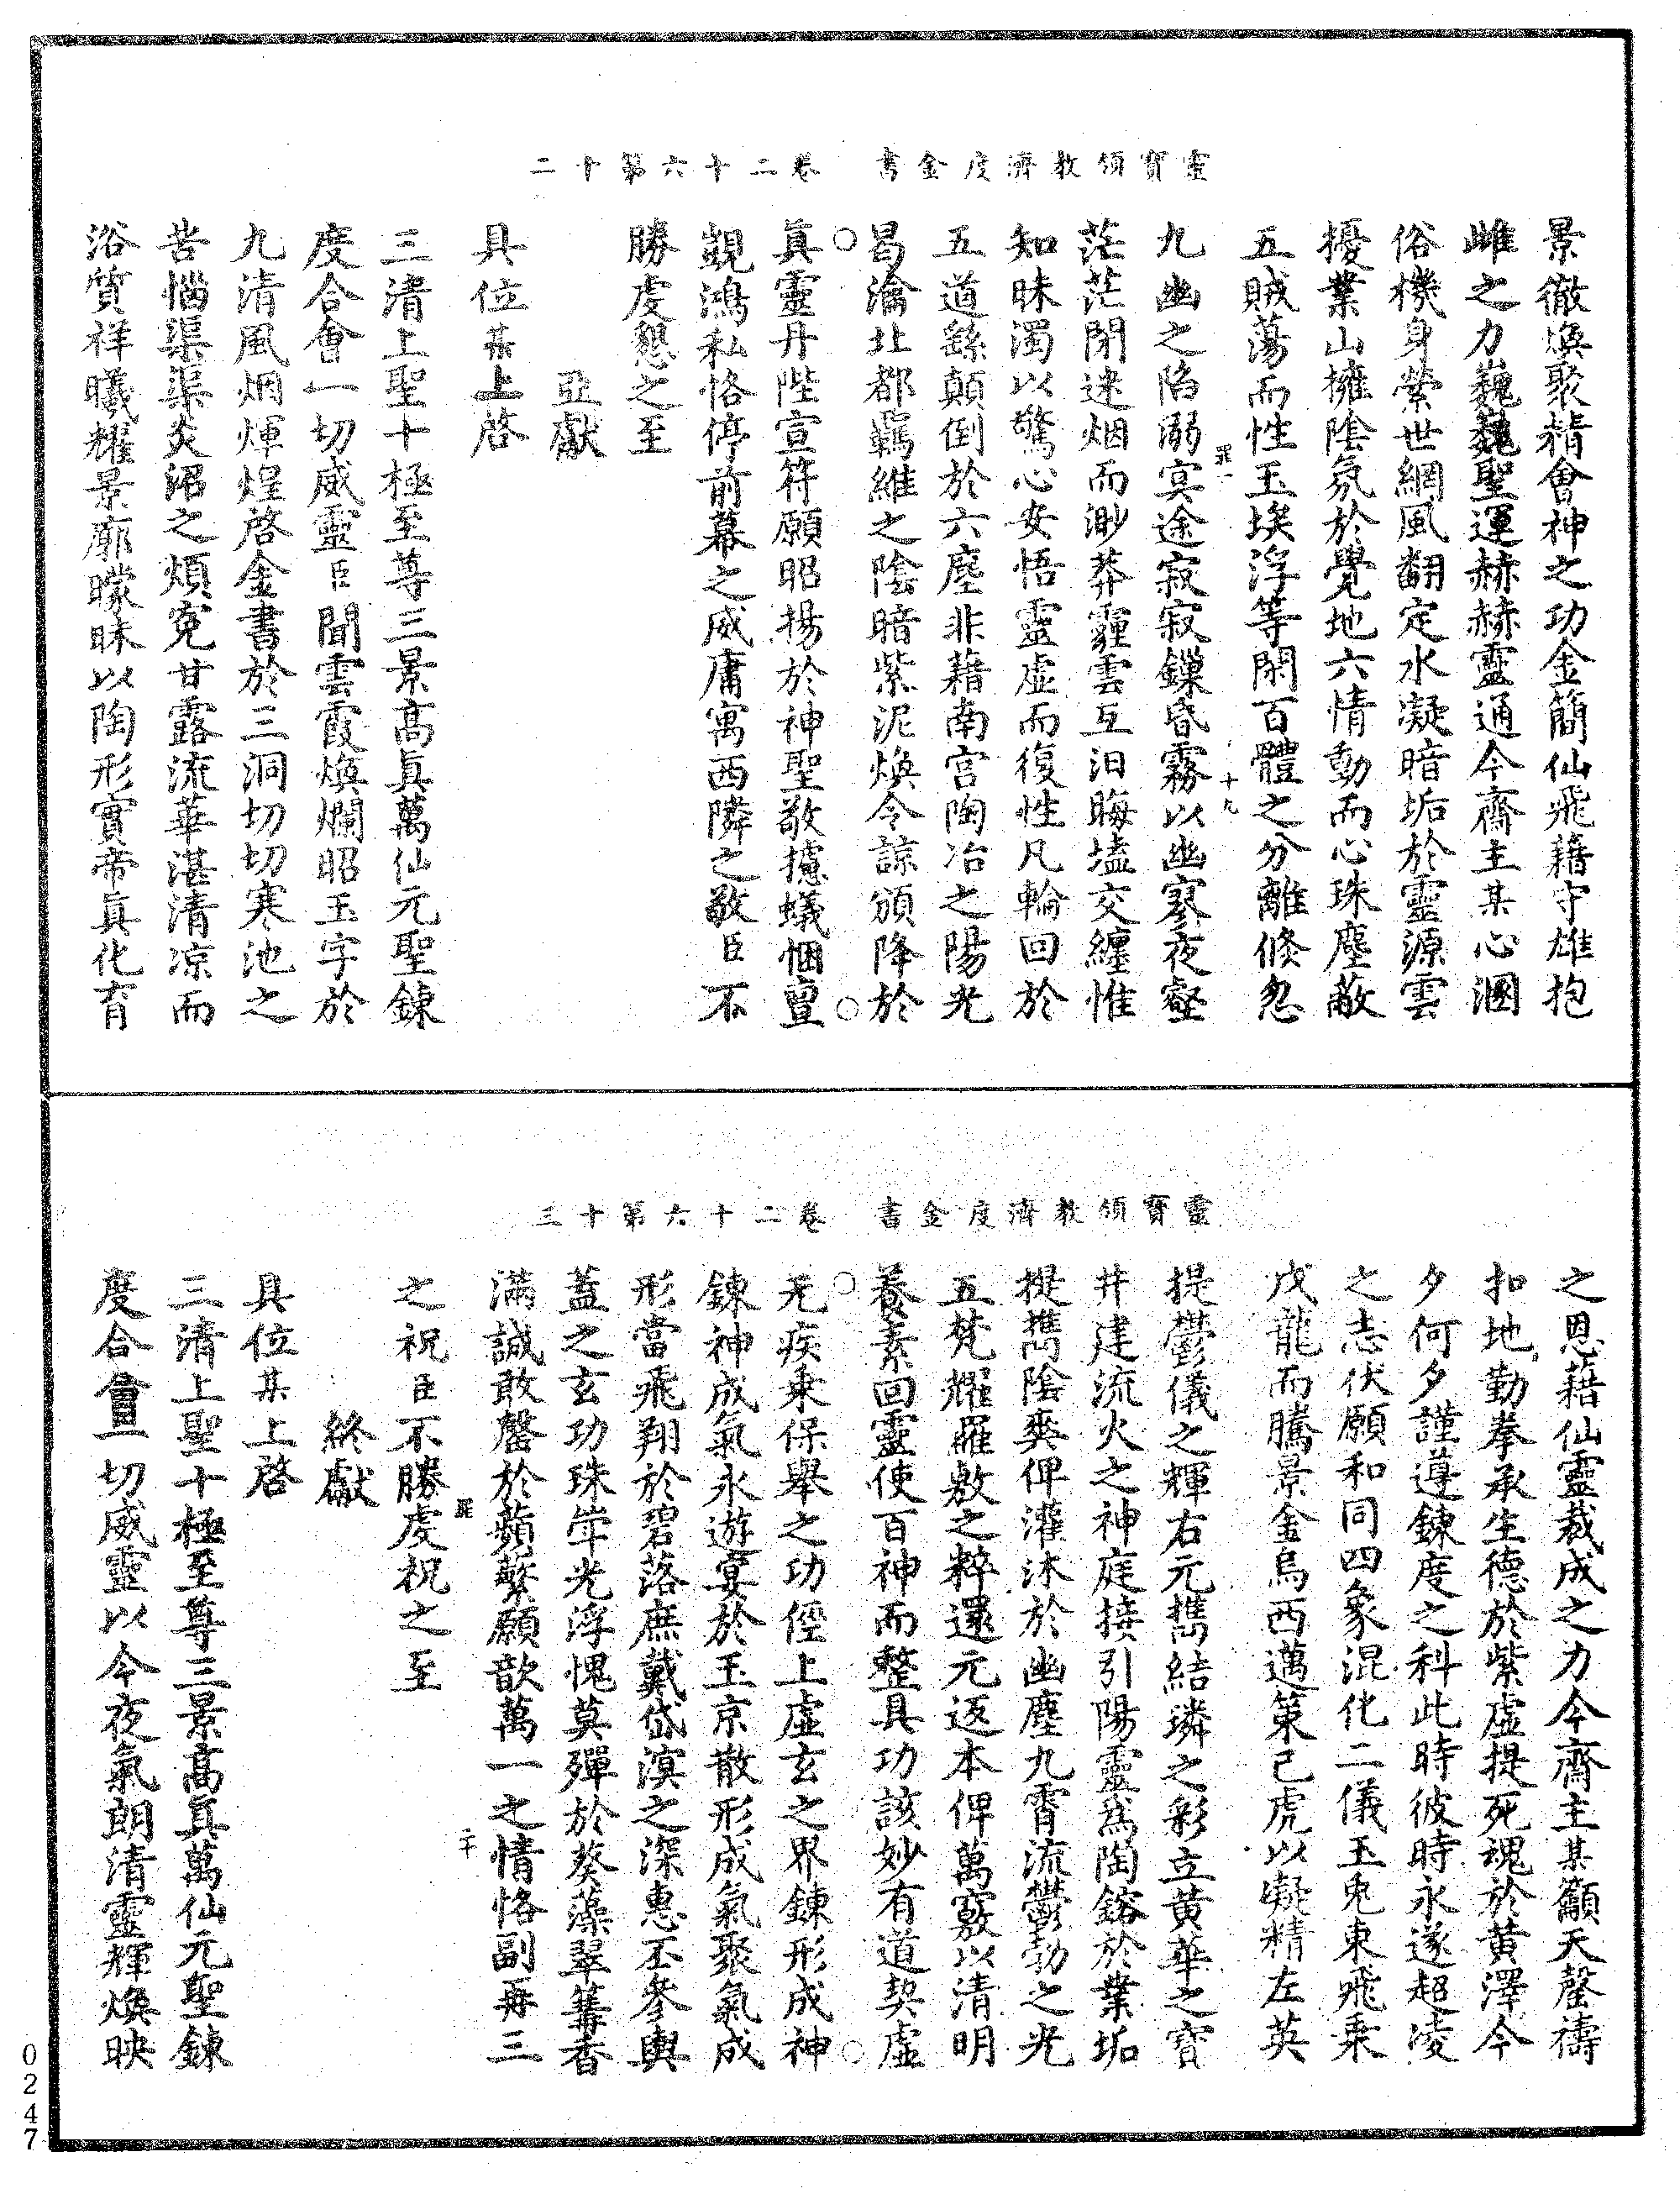 靈寶領教濟度金書　卷二十六第十二
景徹煥聚精會神之功金簡仙飛藉守雄抱
雌之力巍巍聖運赫赫靈通今齋主某心溷
俗機身縈世網風翻定水凝暗垢於靈源雲
擾業山擁陰氛於覺地六情動而心珠塵蔽
五賊蕩而性玉埃浮等閑百體之分離倏忽
九幽之陷溺冥途寂寂鏁昏霧以幽寥夜壑
茫茫閉迷烟而渺莽霾雲互汩晦壒交纏惟
知昧濁以驚心安悟靈虛而復性凡輪回於
五道繇顛倒於六塵非藉南宮陶冶之陽光
曷瀹北都羈維之陰暗紫泥煥令諒頒降於
真靈丹陛宣符願昭揚於神聖敬攄蟻悃亶
覬鴻私恪停前幕之威庸寓西隣之敬臣不
勝虔懇之至
亞獻
具位某上啓
三清上聖十極至尊三景高真萬仙元聖鍊
度合會一切威靈臣聞雲霞煥爛昭玉字於
九清風烟煇煌啓金書於三洞切切寒池之
苦惱渠渠炎沼之煩寃甘露流華湛清凉而
浴質祥曦耀景廓曚昧以陶形實帝真化育
罪一
十九
靈寶領教濟度金書　卷二十六第十三
之恩藉仙靈裁成之力今齋主某籲天罄禱
扣地勤拳承生德於紫虛提死魂於黃澤今
夕何夕謹遵鍊度之科此時彼時永遂超凌
之志伏願和同四象混化二儀玉兎東飛乘
戊龍而騰景金烏西邁策己虎以凝精左英
提鬱儀之輝右元擕結璘之彩立黃華之寳
井建流火之神庭接引陽靈為陶鎔於業垢
提擕陰爽俾灌沐於幽塵九霄流鬱勃之光
五梵耀羅敷之粹還元返本俾萬竅以清明
養素回靈使百神而整具功該妙有道契虛
无疾乗保舉之功徑上虛玄之界鍊形成神
鍊神成氣永遊宴於玉京散形成氣聚氣成
形當飛翔於碧落庶戴岱溟之深惠丕參輿
蓋之玄功珠斝光浮愧莫殫於葵藻翠篝香
滿誠敢罄於蘋蘩願歆萬一之情恪副再三
之祝臣不勝虔祝之至
終獻
具位某上啓
三清上聖十極至尊三景高真萬仙元聖鍊
度合會一切威靈以今夜氣朗清靈輝煥映
罪
二十
0247